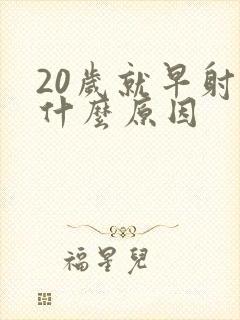 20歲就早射
什麼原因
福星兒